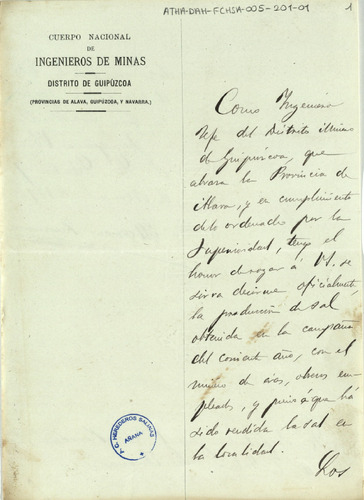 ATHA-DAH-FCHSA-005-201-01
1
CUERPO NACIONAL
DE
INGENIEROS DE MINAS
DISTRITO DE GUIPÚZCOA
(PROVINCIAS DE ALAVA, GUIPÚZCOA, Y NAVARRA.)
Como Ingeniero
Jefe del Distrito Minero
de Guipúzcoa, que
abraza la Provincia de
Alava, y en cumplimiento
de lo ordenado por la
Superioridad, tengo el
honor de rogar á V. se
sirva decirme oficialmente
la producción de sal
obtenida en la campaña
del corriente año, con el
número de eras, obreros em-
pleados, y precio á que há
sido vendida la sal en
la localidad.
Los
HEREDEROS SALINAS
AÑANA